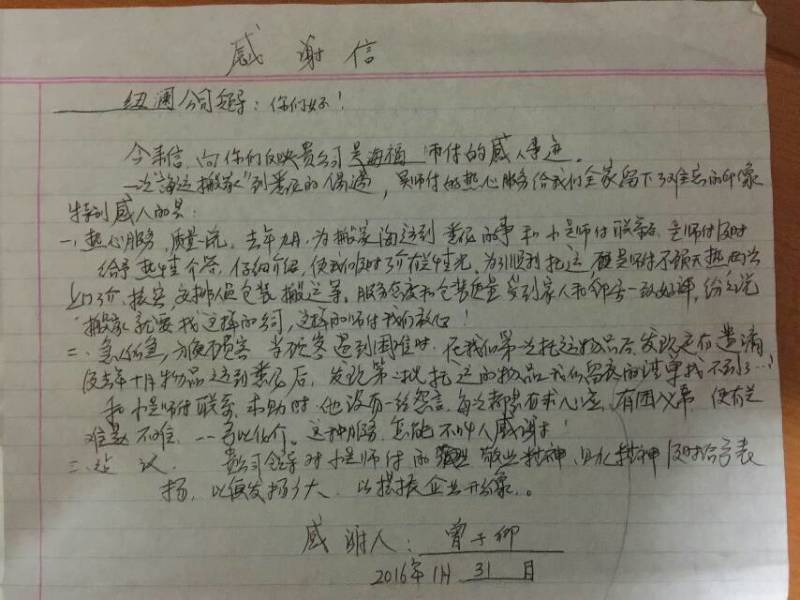 感谢信
纽澜公司领导：你们好！
今来信，向你们反映贵公司吴海福师付的感人事迹。
一次"海运搬家"到悉尼的偶遇，吴师付的热心服务给我们全家留下了难忘的印像
特别感人的是：
一、热心服务，质量一流。去年九月，为搬家海运到悉尼的事和小吴师付联系，吴师付及时
给予热情介答，仔细介绍，使我们及时了介有关情况。为了顺利托运，吴师付不顾天热两次
上门了介、接案，安排人员包装搬运等，服务态度和包装质量受到家人和邻居一致好评，纷纷说
"搬家就要找这样的公司，这样的师付我们放心！
二、急人所急，方便顾客。当顾客遇到困难时，在我们第一次托运物品后发现还有遗漏
及去年十月物品运到悉尼后，发现第一批托运的物品我们留底的清单找不到了…！
和小吴师付联系求助时，他没有一丝怨言，每次都是有求必应，有困必帮，使有关
难题不住，一一予以化介。这种服务，怎能不叫人感谢！
三、建议。贵公司领导对小吴师付的敬业精神，及时给予表
扬，以便发扬广大，以提振企业形象。
感谢人：曾子仰
2016年1月31日